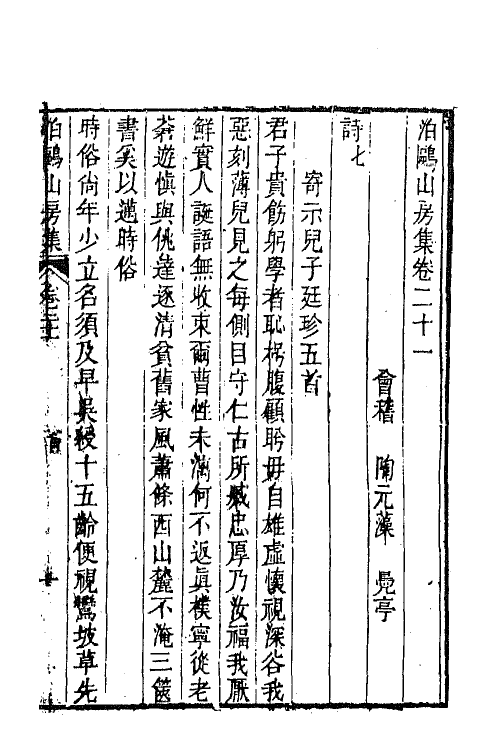 泊鷗山房集卷二十一
會稽　陶元藻　鳧亭
詩七
寄示兒子廷珍五首
君子貴飭躬學者恥枵腹顧盻毋自雄虛懷視深谷我
惡刻薄兒見之每側目守仁古所臧忠厚乃汝福我厭
鮮實人誕語無收束爾曹性未漓何不返眞樸寧從老
莽遊愼與佻達逐淸貧舊家風蕭條西山麓不淹三篋
書奚以邁時俗
時俗尙年少立名須及早吳綬十五齡便視鸞坡草先
泊鷗山房集　卷二十一